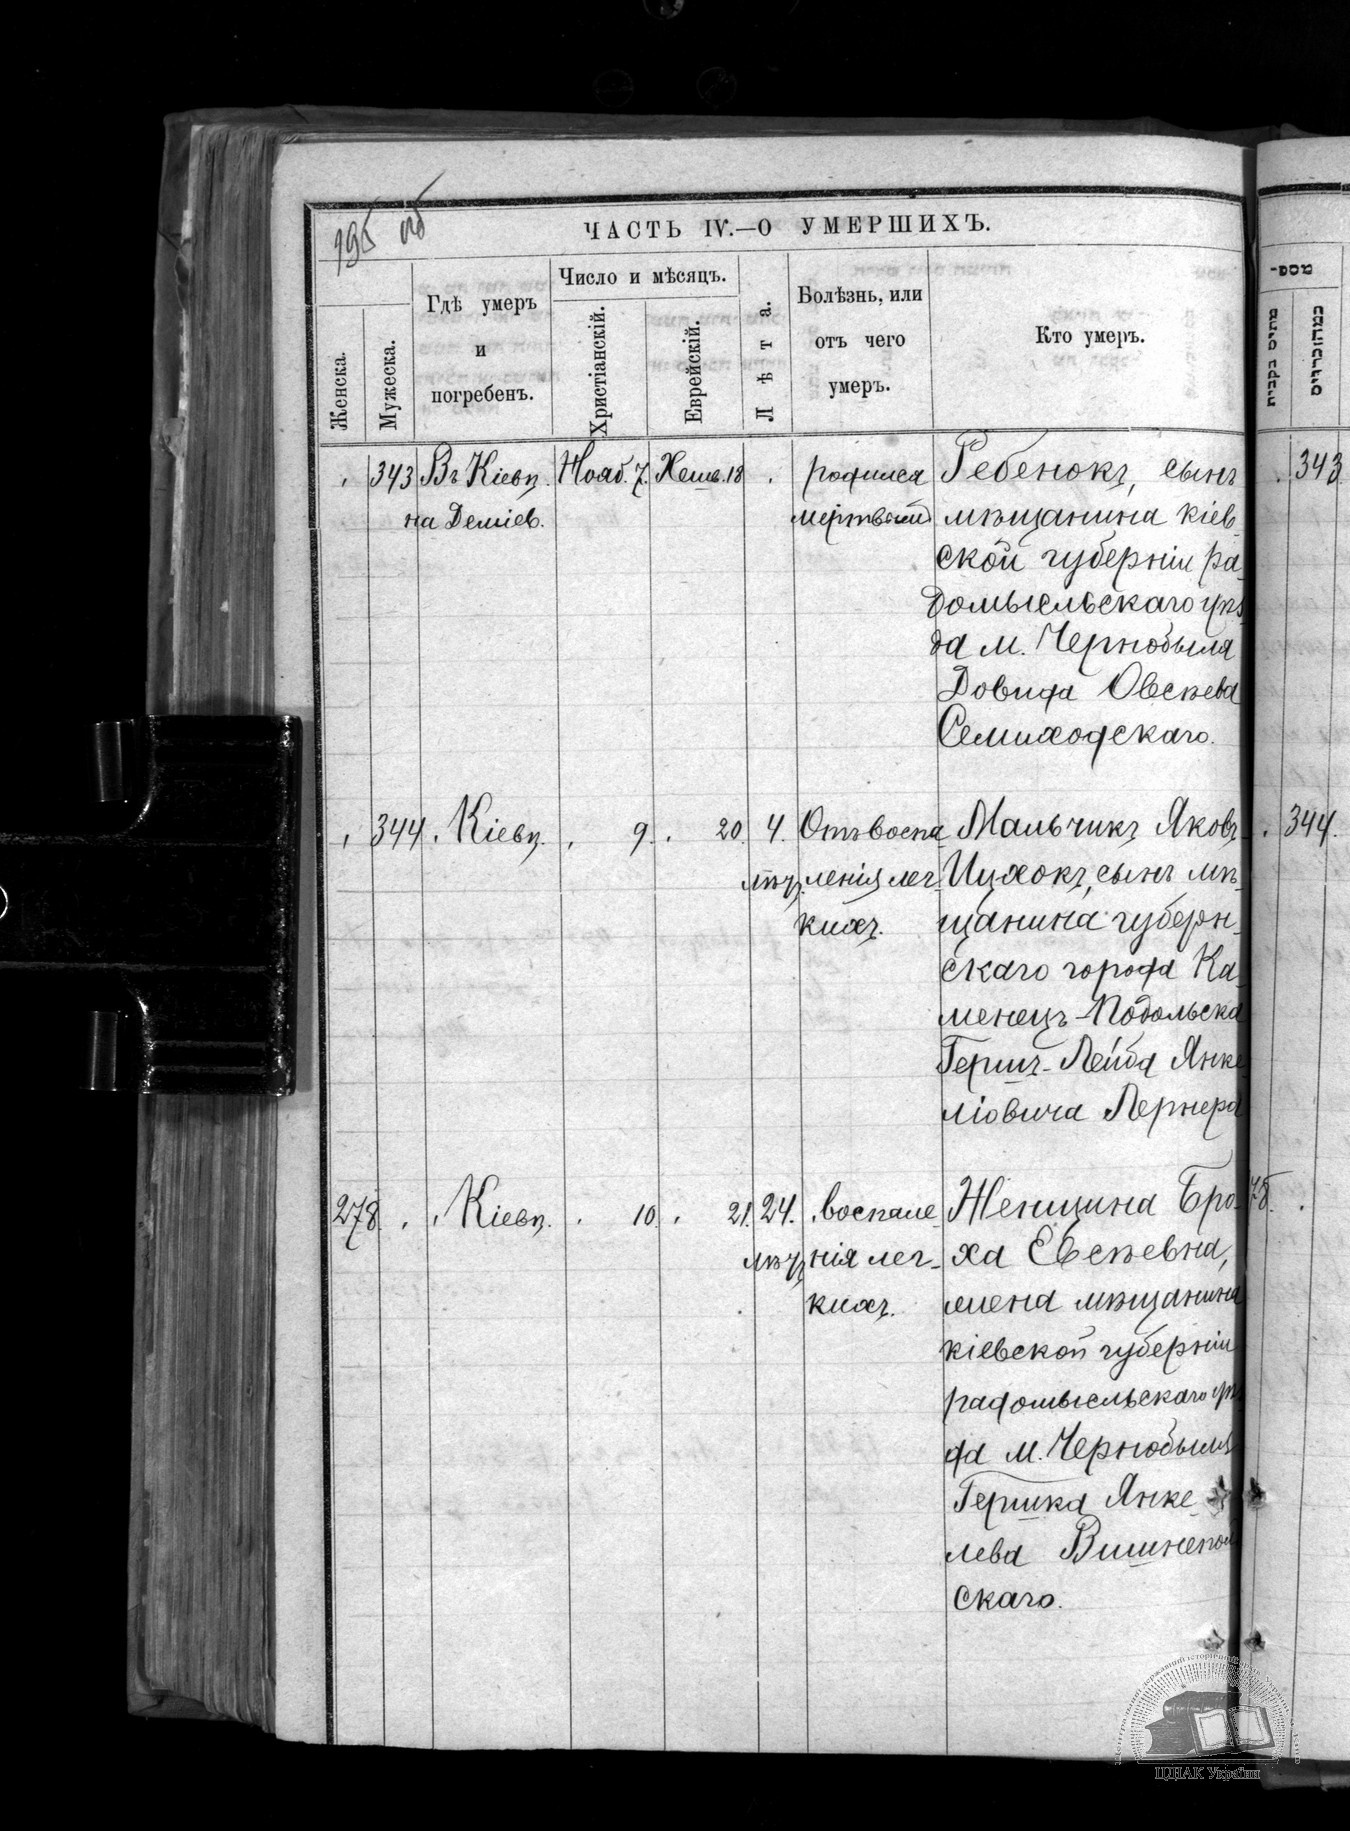 195 об
ЧАСТЬ IV.—О УМЕРШИХЪ.
Женска.
Мужеска.
Гдѣ умеръ
и
погребенъ.
Число и мѣсяцъ.
Христіанскій.
Еврейскій.
Лѣта.
Болѣзнь, или
отъ чего
умеръ.
Кто умеръ.
343 Въ Кіевѣ Нояб. 7. Хешв. 18 родился Ребенокъ, сынъ
на Деміев. мертвый мѣщанина кіев-
ской губерніи ра-
домысльскаго уѣз
да м. Чернобыля
Довида Овсѣева
Семиходскаго.
344 Кіевѣ. 9. 20. 4. Отъ воспа Мальчикъ Яковъ
мѣц. ленія лег- Ицхокъ, сынъ мѣ-
кихъ. щанина губерн-
скаго города Ка-
менецъ-Подольска
Гершъ-Лейба Янке
ліовича Лернера
278 Кіевѣ. 10. 21. 24. воспале- Женщина Бро-
нія лег- ха Евсѣевна,
кихъ. жена мѣщанина
кіевской губерніи
радомысльскаго уѣ
да м. Чернобыля
Гершка Янке
лева Вишнепол
скаго.
מספ-
343
344.
78.
ЦНАК України